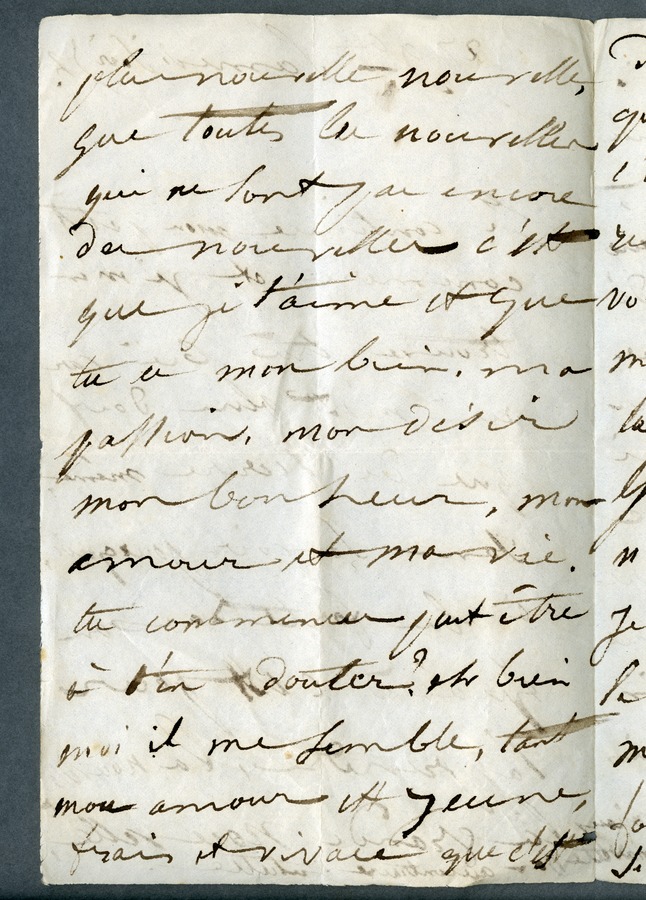 plus nouvelle nouvelle,
que toutes les nouvelles
qui ne sont pas encore
des nouvelles c'est
que je t'aime et que
tu es mon bien, ma
passion, mon désir
mon bonheur, mon
amour et ma vie.
tu commences peut être
à t'en douter? eh bien
moi il me semble, tant
mon amour est jeune,
frais et vivace que c'est